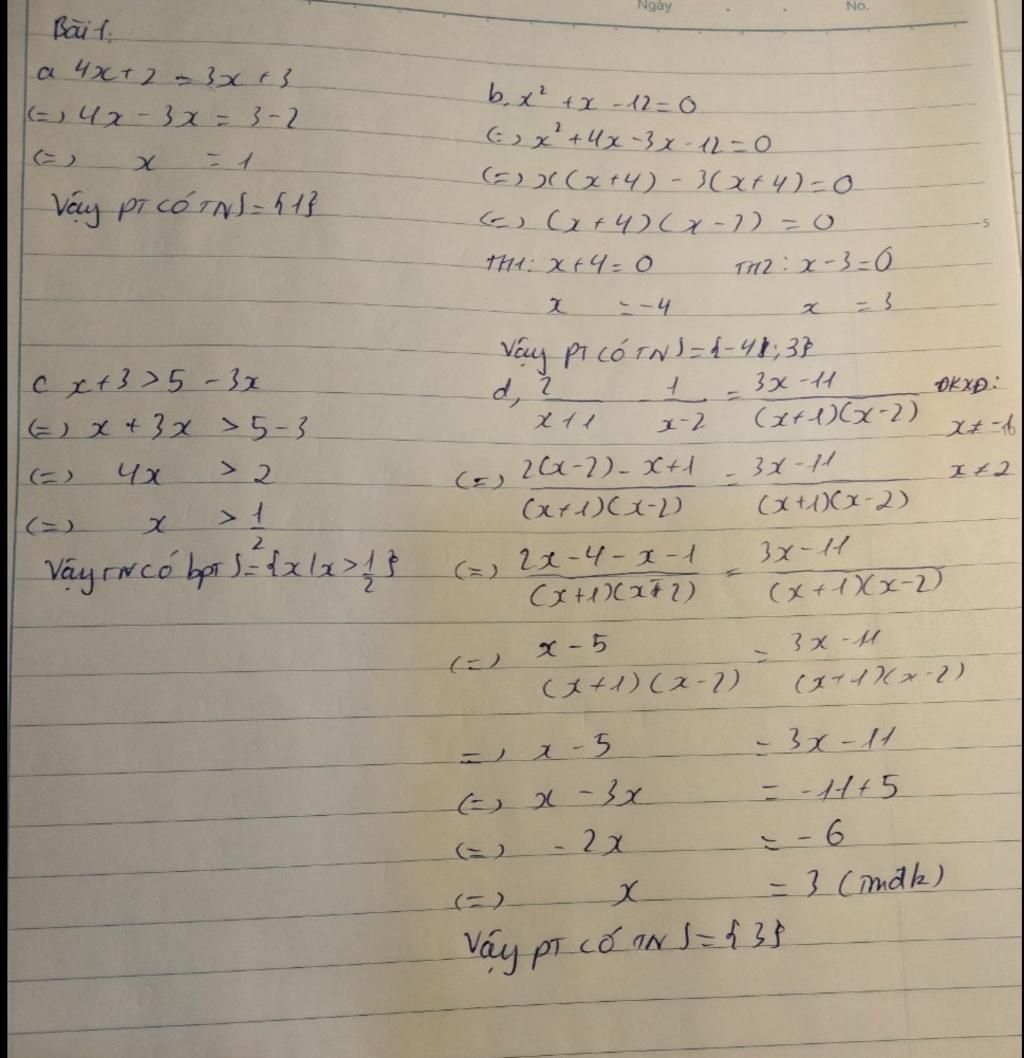 Ngày . . No.
Bài 1:
a 4x+2 = 3x+3
(=) 4x - 3x = 3-2
(=) x = 1
Vậy PT có TN S={1}
b, x² + x - 12 = 0
(=) x² + 4x - 3x - 12 = 0
(=) x(x+4) - 3(x+4) = 0
(=) (x+4)(x-3) = 0
TH1: x+4=0 TH2: x-3=0
x = -4 x = 3
Vậy PT có TN S={-4;3}
c x+3 > 5 - 3x
(=) x + 3x > 5-3
(=) 4x > 2
(=) x > 1/2
Vậy TN có bpt S={x/x > 1/2}
d, 2/(x+1) 1/(x-2) = (3x-11)/((x+1)(x-2)) ĐKXĐ:
x≠-1
x≠2
(=) (2(x-2) - x+1)/((x+1)(x-2)) = (3x-11)/((x+1)(x-2))
(=) (2x-4-x-1)/((x+1)(x-2)) = (3x-11)/((x+1)(x-2))
(=) (x-5)/((x+1)(x-2)) = (3x-11)/((x+1)(x-2))
=) x-5 = 3x-11
(=) x - 3x = -11+5
(=) -2x = -6
(=) x = 3 (tmđk)
Vậy PT có TN S={3}
5